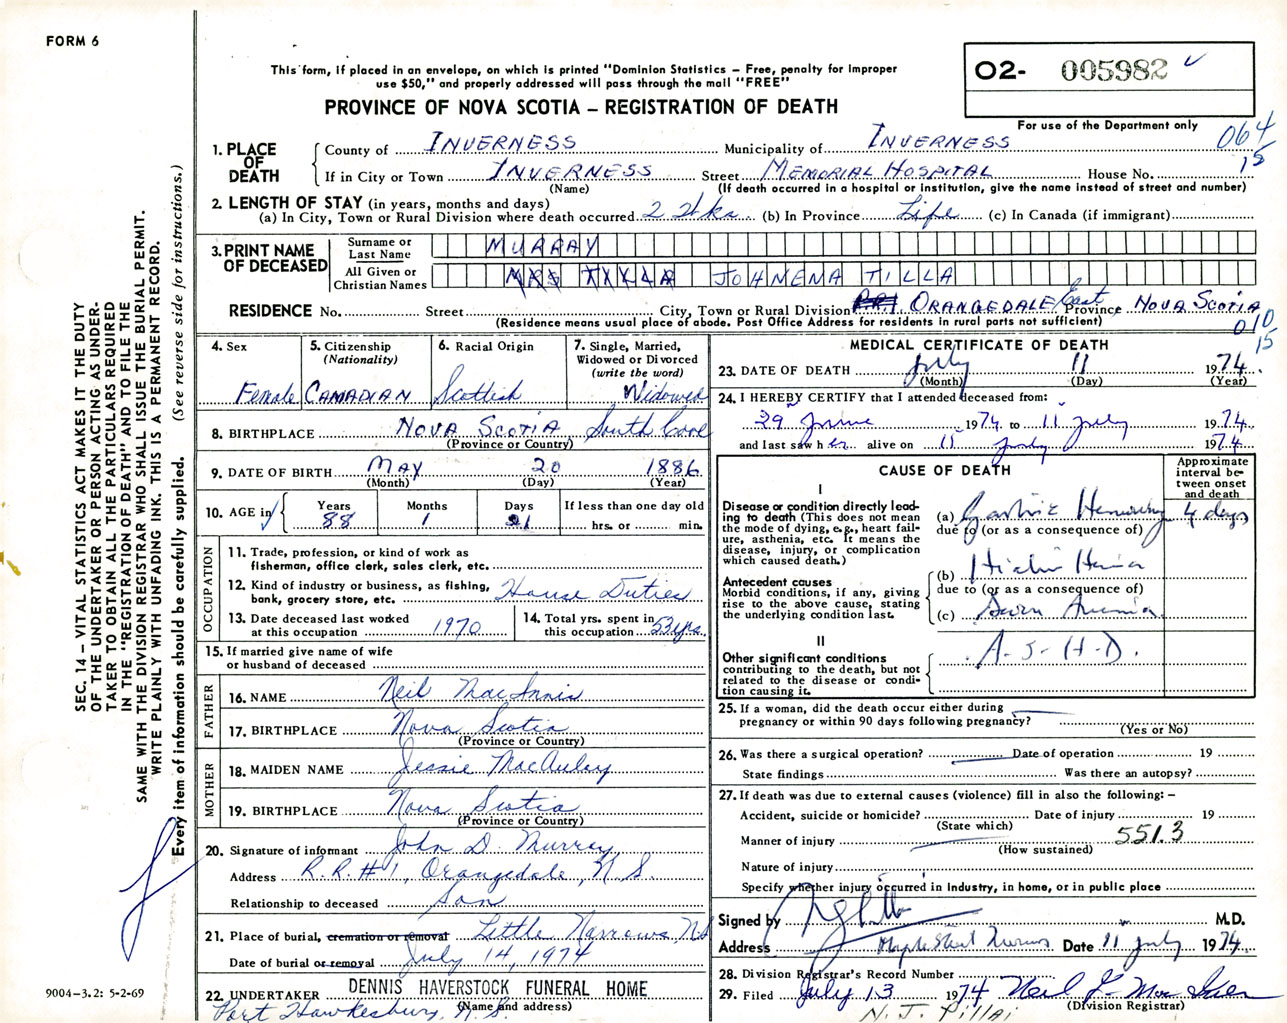 FORM 6
This form, if placed in an envelope, on which is printed "Dominion Statistics – Free, penalty for improper
use $50," and properly addressed will pass through the mail "FREE"
O2- 005982
PROVINCE OF NOVA SCOTIA – REGISTRATION OF DEATH
For use of the Department only
064
15
1. PLACE OF DEATH
County of INVERNESS Municipality of INVERNESS
If in City or Town INVERNESS Street MEMORIAL HOSPITAL House No.
(Name) (If death occurred in a hospital or institution, give the name instead of street and number)
2. LENGTH OF STAY (in years, months and days)
(a) In City, Town or Rural Division where death occurred 2 Wks (b) In Province Life (c) In Canada (if immigrant)
3. PRINT NAME OF DECEASED
Surname or Last Name MURRAY
All Given or Christian Names MRS TILLA JOHNENA TILLA
RESIDENCE No. Street City, Town or Rural Division RR1 ORANGEDALE East Province NOVA SCOTIA
(Residence means usual place of abode. Post Office Address for residents in rural parts not sufficient)
010
15
4. Sex
Female
5. Citizenship
(Nationality)
CANADIAN
6. Racial Origin
Scottish
7. Single, Married,
Widowed or Divorced
(write the word)
Widowed
8. BIRTHPLACE NOVA SCOTIA South Cove
(Province or Country)
9. DATE OF BIRTH MAY 20 1886
(Month) (Day) (Year)
10. AGE in Years Months Days If less than one day old
88 1 21 hrs. or min.
OCCUPATION
11. Trade, profession, or kind of work as
fisherman, office clerk, sales clerk, etc.
12. Kind of industry or business, as fishing,
bank, grocery store, etc. House Duties
13. Date deceased last worked
at this occupation 1970
14. Total yrs. spent in
this occupation 53 yrs.
15. If married give name of wife
or husband of deceased
FATHER
16. NAME Neil MacInnis
17. BIRTHPLACE Nova Scotia
(Province or Country)
MOTHER
18. MAIDEN NAME Jessie MacAuley
19. BIRTHPLACE Nova Scotia
(Province or Country)
20. Signature of informant John D. Murray
Address R.R.#1, Orangedale, N.S.
Relationship to deceased Son
21. Place of burial, cremation or removal Little Narrows NS
Date of burial or removal July 14, 1974
22. UNDERTAKER DENNIS HAVERSTOCK FUNERAL HOME
(Name and address)
Port Hawkesbury, N.S.
MEDICAL CERTIFICATE OF DEATH
23. DATE OF DEATH July 11 1974
(Month) (Day) (Year)
24. I HEREBY CERTIFY that I attended deceased from:
29 June 1974 to 11 July 1974
and last saw her alive on 11 July 1974
CAUSE OF DEATH
Approximate
interval be-
tween onset
and death
I
Disease or condition directly lead-
ing to death (This does not mean
the mode of dying, e.g., heart fail-
ure, asthenia, etc. It means the
disease, injury, or complication
which caused death.)
(a) Gastric 4 days
due to (or as a consequence of)
Antecedent causes
Morbid conditions, if any, giving
rise to the above cause, stating
the underlying condition last.
(b) Hernia
due to (or as a consequence of)
(c) Anemia
II
Other significant conditions
contributing to the death, but not
related to the disease or condi-
tion causing it.
A-S-H-D.
25. If a woman, did the death occur either during
pregnancy or within 90 days following pregnancy?
(Yes or No)
26. Was there a surgical operation? Date of operation 19
State findings Was there an autopsy?
27. If death was due to external causes (violence) fill in also the following: –
Accident, suicide or homicide? Date of injury 19
(State which)
Manner of injury 551.3
(How sustained)
Nature of injury
Specify whether injury occurred in industry, in home, or in public place
Signed by M.D.
Address Maple Street Date 11 July 1974
28. Division Registrar's Record Number
29. Filed July 13 1974 Neil
(Division Registrar)
N. J. Pillai
SEC. 14 – VITAL STATISTICS ACT MAKES IT THE DUTY
OF THE UNDERTAKER OR PERSON ACTING AS UNDER-
TAKER TO OBTAIN ALL THE PARTICULARS REQUIRED
IN THE "REGISTRATION OF DEATH" AND TO FILE THE
SAME WITH THE DIVISION REGISTRAR WHO SHALL ISSUE THE BURIAL PERMIT.
WRITE PLAINLY WITH UNFADING INK. THIS IS A PERMANENT RECORD.
Every item of information should be carefully supplied. (See reverse side for instructions.)
9004–3.2: 5-2-69